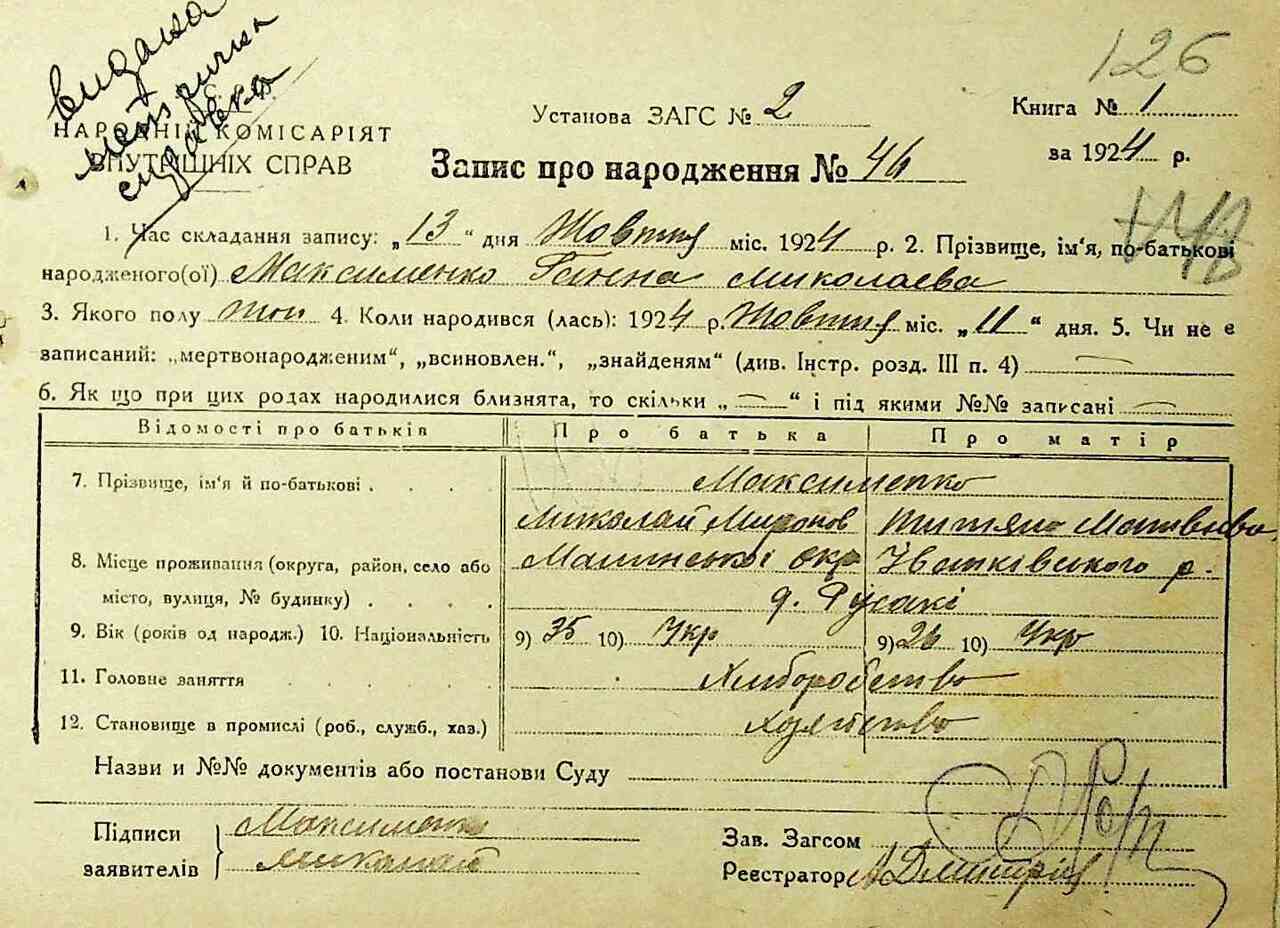 126
видана
метрична
справка
С.Р.Р.
НАРОДНІЙ КОМІСАРІЯТ
ВНУТРІШНІХ СПРАВ
Установа ЗАГС № 2
Книга № 1
Запис про народження № 46
за 1924 р.
1. Час складання запису: „13“ дня Жовтня міс. 1924 р. 2. Прізвище, ім'я, по-батькові
народженого(ої) Максименко Ганна Миколаева
3. Якого полу жон 4. Коли народився (лась): 1924 р. Жовтня міс. „11“ дня. 5. Чи не є
записаний: „мертвонародженим“, „всиновлен.“, „знайденям“ (див. Інстр. розд. III п. 4) —
6. Як що при цих родах народилися близнята, то скільки „—“ і під якими №№ записані —
Відомості про батьків Про батька Про матір
7. Прізвище, ім'я й по-батькові . . . . Максименко
Миколай Миронов Титяна Матвиива
8. Місце проживання (округа, район, село або Малинської окр Іванківського р.
місто, вулиця, № будинку) . . . . д. Русакі
9. Вік (років од народж.) 10. Національність 9) 35 10) Укр 9) 26 10) Укр
11. Головне заняття . . . . . Хлиборобство
12. Становище в промислі (роб., служб., хаз.) Хозяйство
Назви и №№ документів або постанови Суду —
Підписи Максименко
заявителів Миколай
Зав. Загсом
Реєстратор Дмитрів